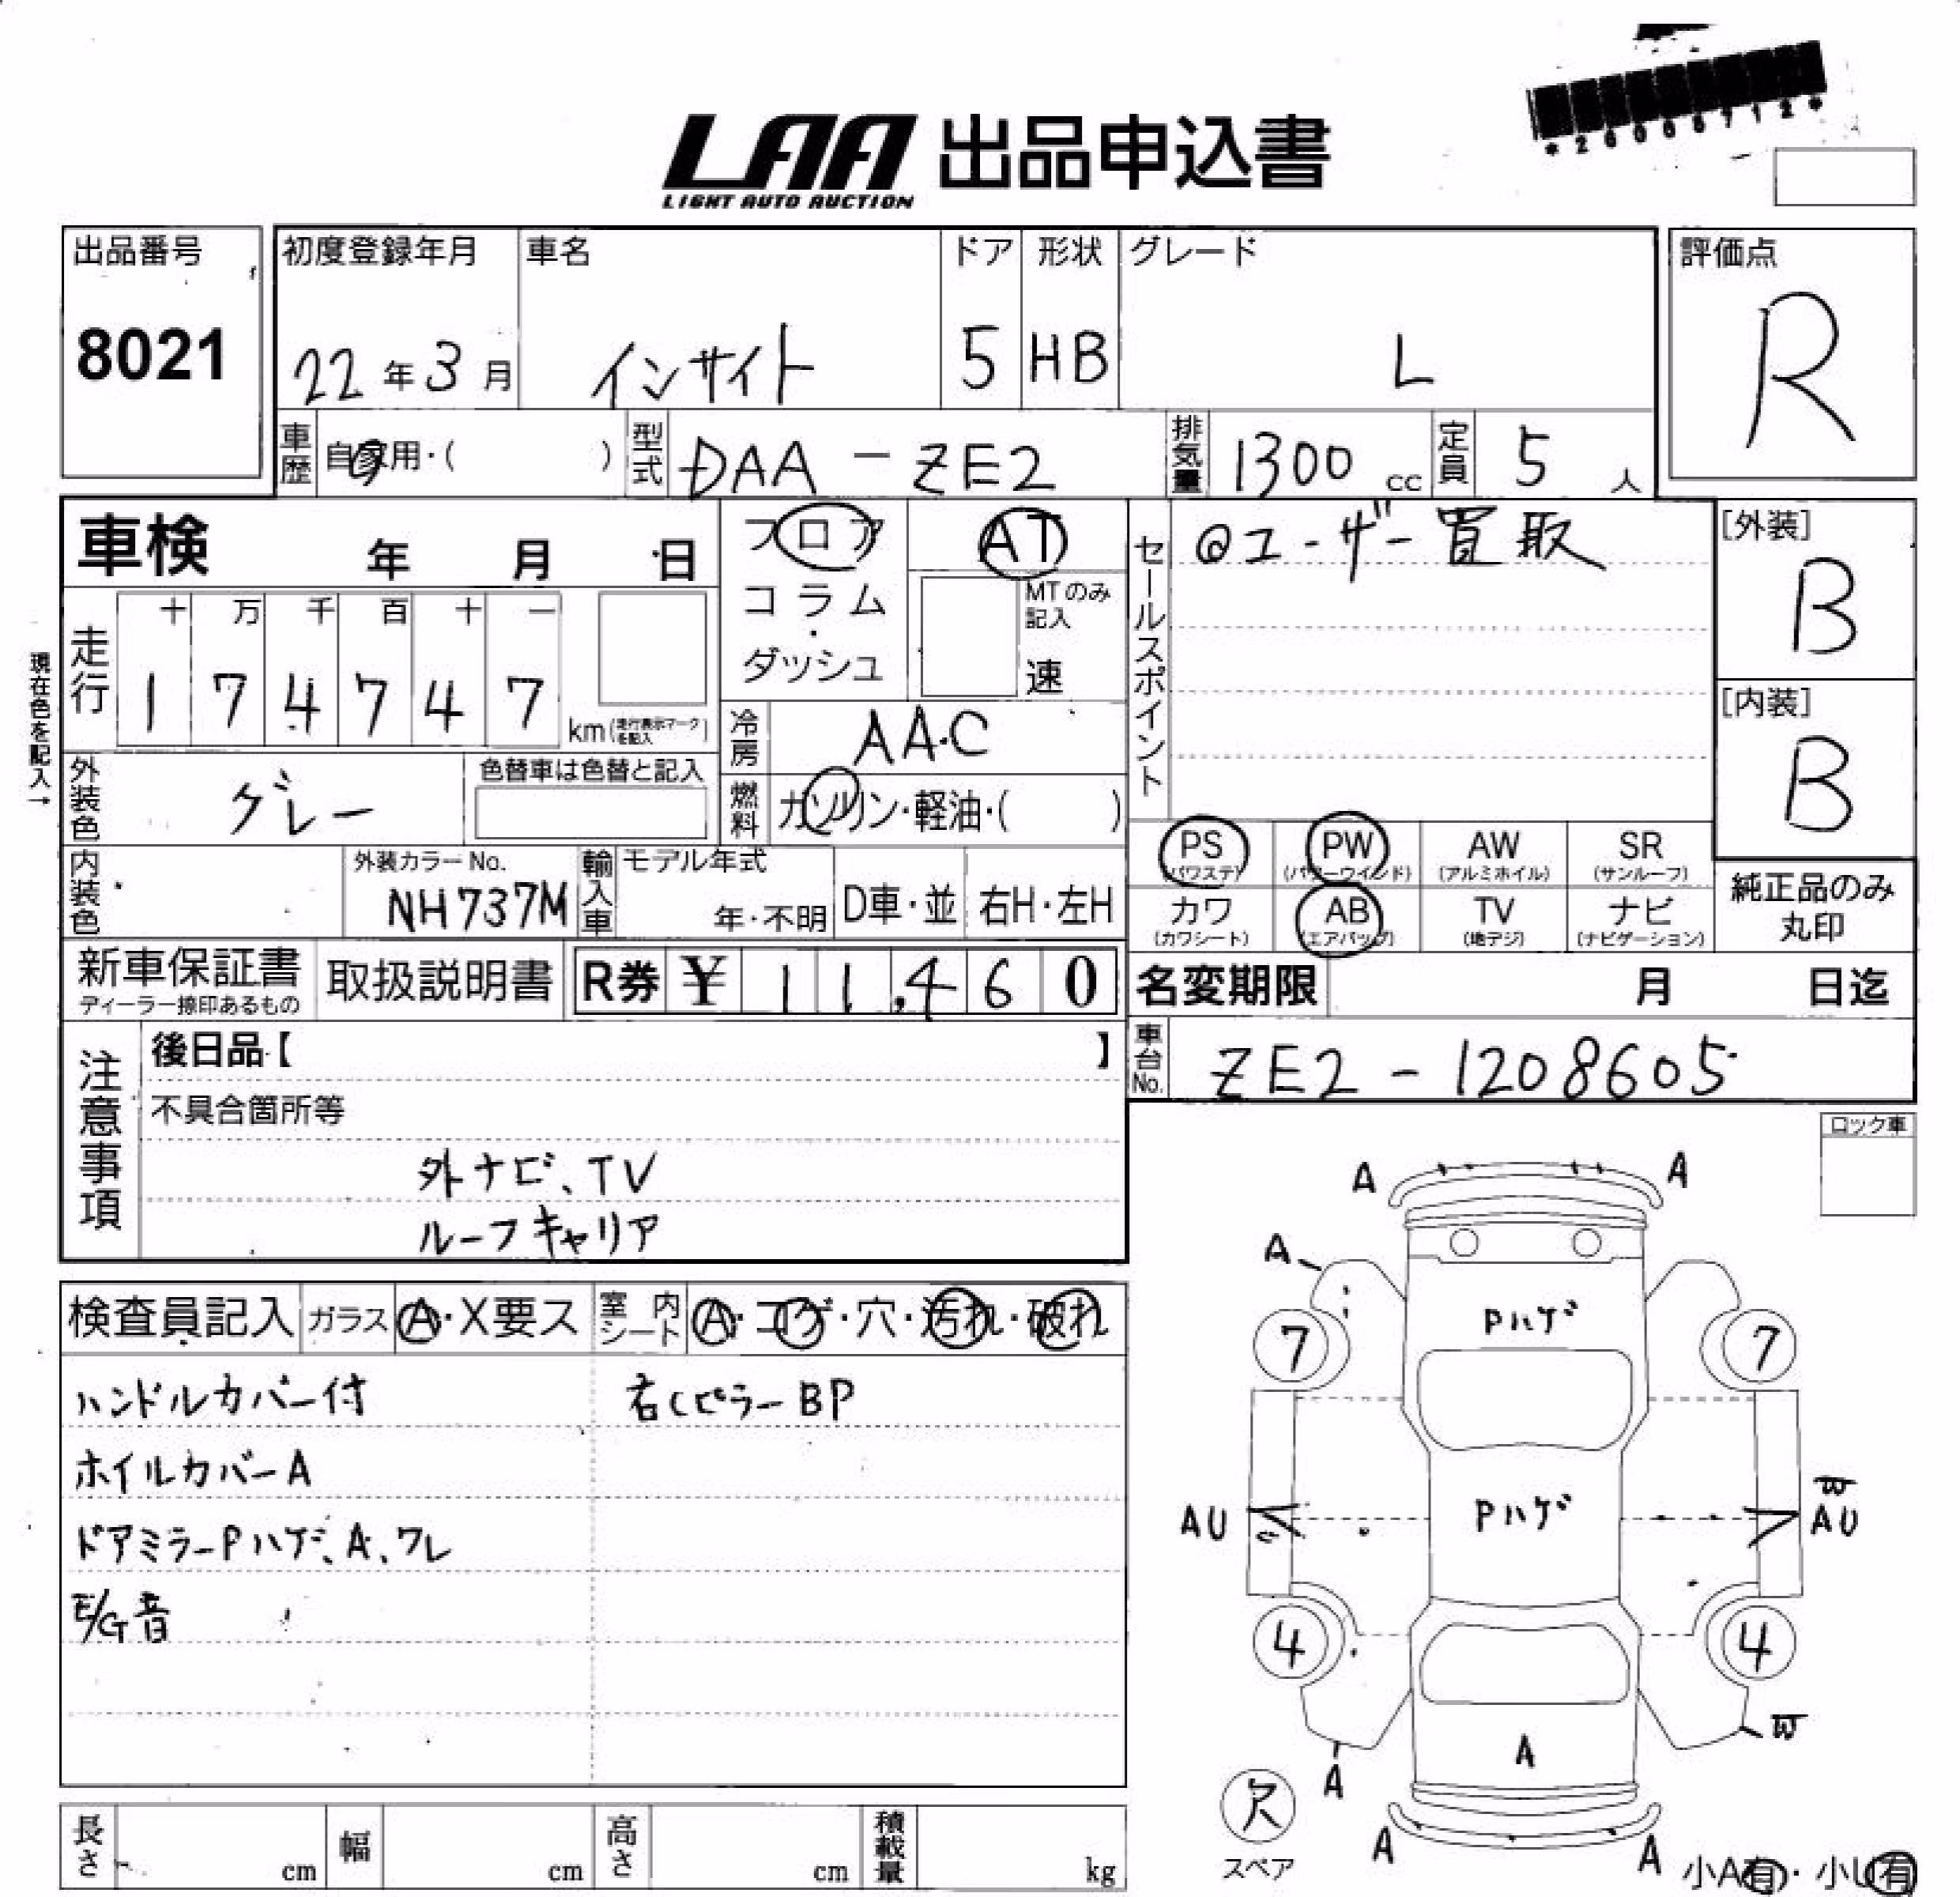 *26006712*
LAA 出品申込書
LIGHT AUTO AUCTION
出品番号
8021
初度登録年月
22年3月
車名
インサイト
ドア
5
形状
HB
グレード
L
評価点
R
車歴 自家用・( )
型式 DAA-ZE2
排気量 1300 cc
定員 5 人
車検 年 月 日
フロア
コラム・
ダッシュ
AT
MTのみ
記入
速
セールスポイント
@ユーザー買取
[外装]
B
[内装]
B
現在色を記入→
走行
十 万 千 百 十 一
1 7 4 7 4 7
km(走行表示マークを記入)
冷房 AAC
燃料 ガソリン・軽油・( )
外装色 グレー
色替車は色替と記入
内装色
外装カラーNo.
NH737M
輸入車
モデル年式
年・不明
D車・並
右H・左H
PS
(パワステ)
PW
(パワーウインド)
AW
(アルミホイル)
SR
(サンルーフ)
カワ
(カワシート)
AB
(エアバッグ)
TV
(地デジ)
ナビ
(ナビゲーション)
純正品のみ
丸印
新車保証書
ディーラー捺印あるもの
取扱説明書
R券 ¥ 11,460
名変期限 月 日迄
車台No. ZE2-1208605
注意事項
後日品【 】
不具合箇所等
外ナビ、TV
ルーフキャリア
ロック車
検査員記入
ガラス A・X要ス
室内シート A・コゲ・穴・汚れ・破れ
ハンドルカバー付
右Cピラー BP
ホイルカバーA
ドアミラーPハゲ、A、ワレ
E/G音
A A
A
Pハゲ
7 7
Pハゲ
AU
W
AU
4 4
W
A
A
欠
スペア
A A
小A有・小U有
長さ cm
幅 cm
高さ cm
積載量 kg